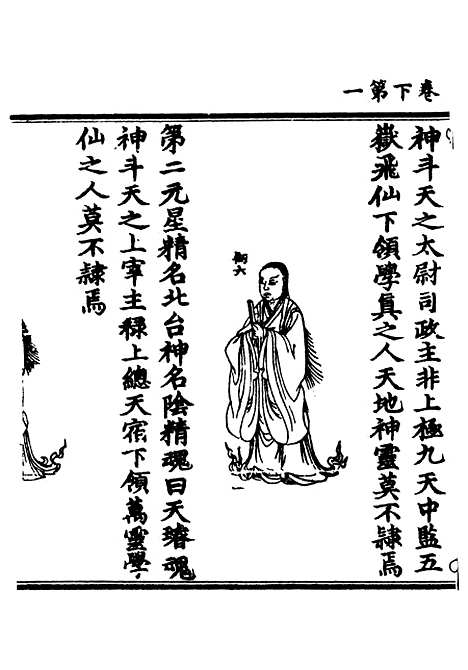 卷下第一
神斗天之太尉司政主非上極九天中監五
嶽飛仙下領學真之人天地神靈莫不隸焉
第二元星精名北台神名陰精魂曰天璿魂
神斗天之上宰主祿上總天宿下領萬靈學
仙之人莫不隸焉